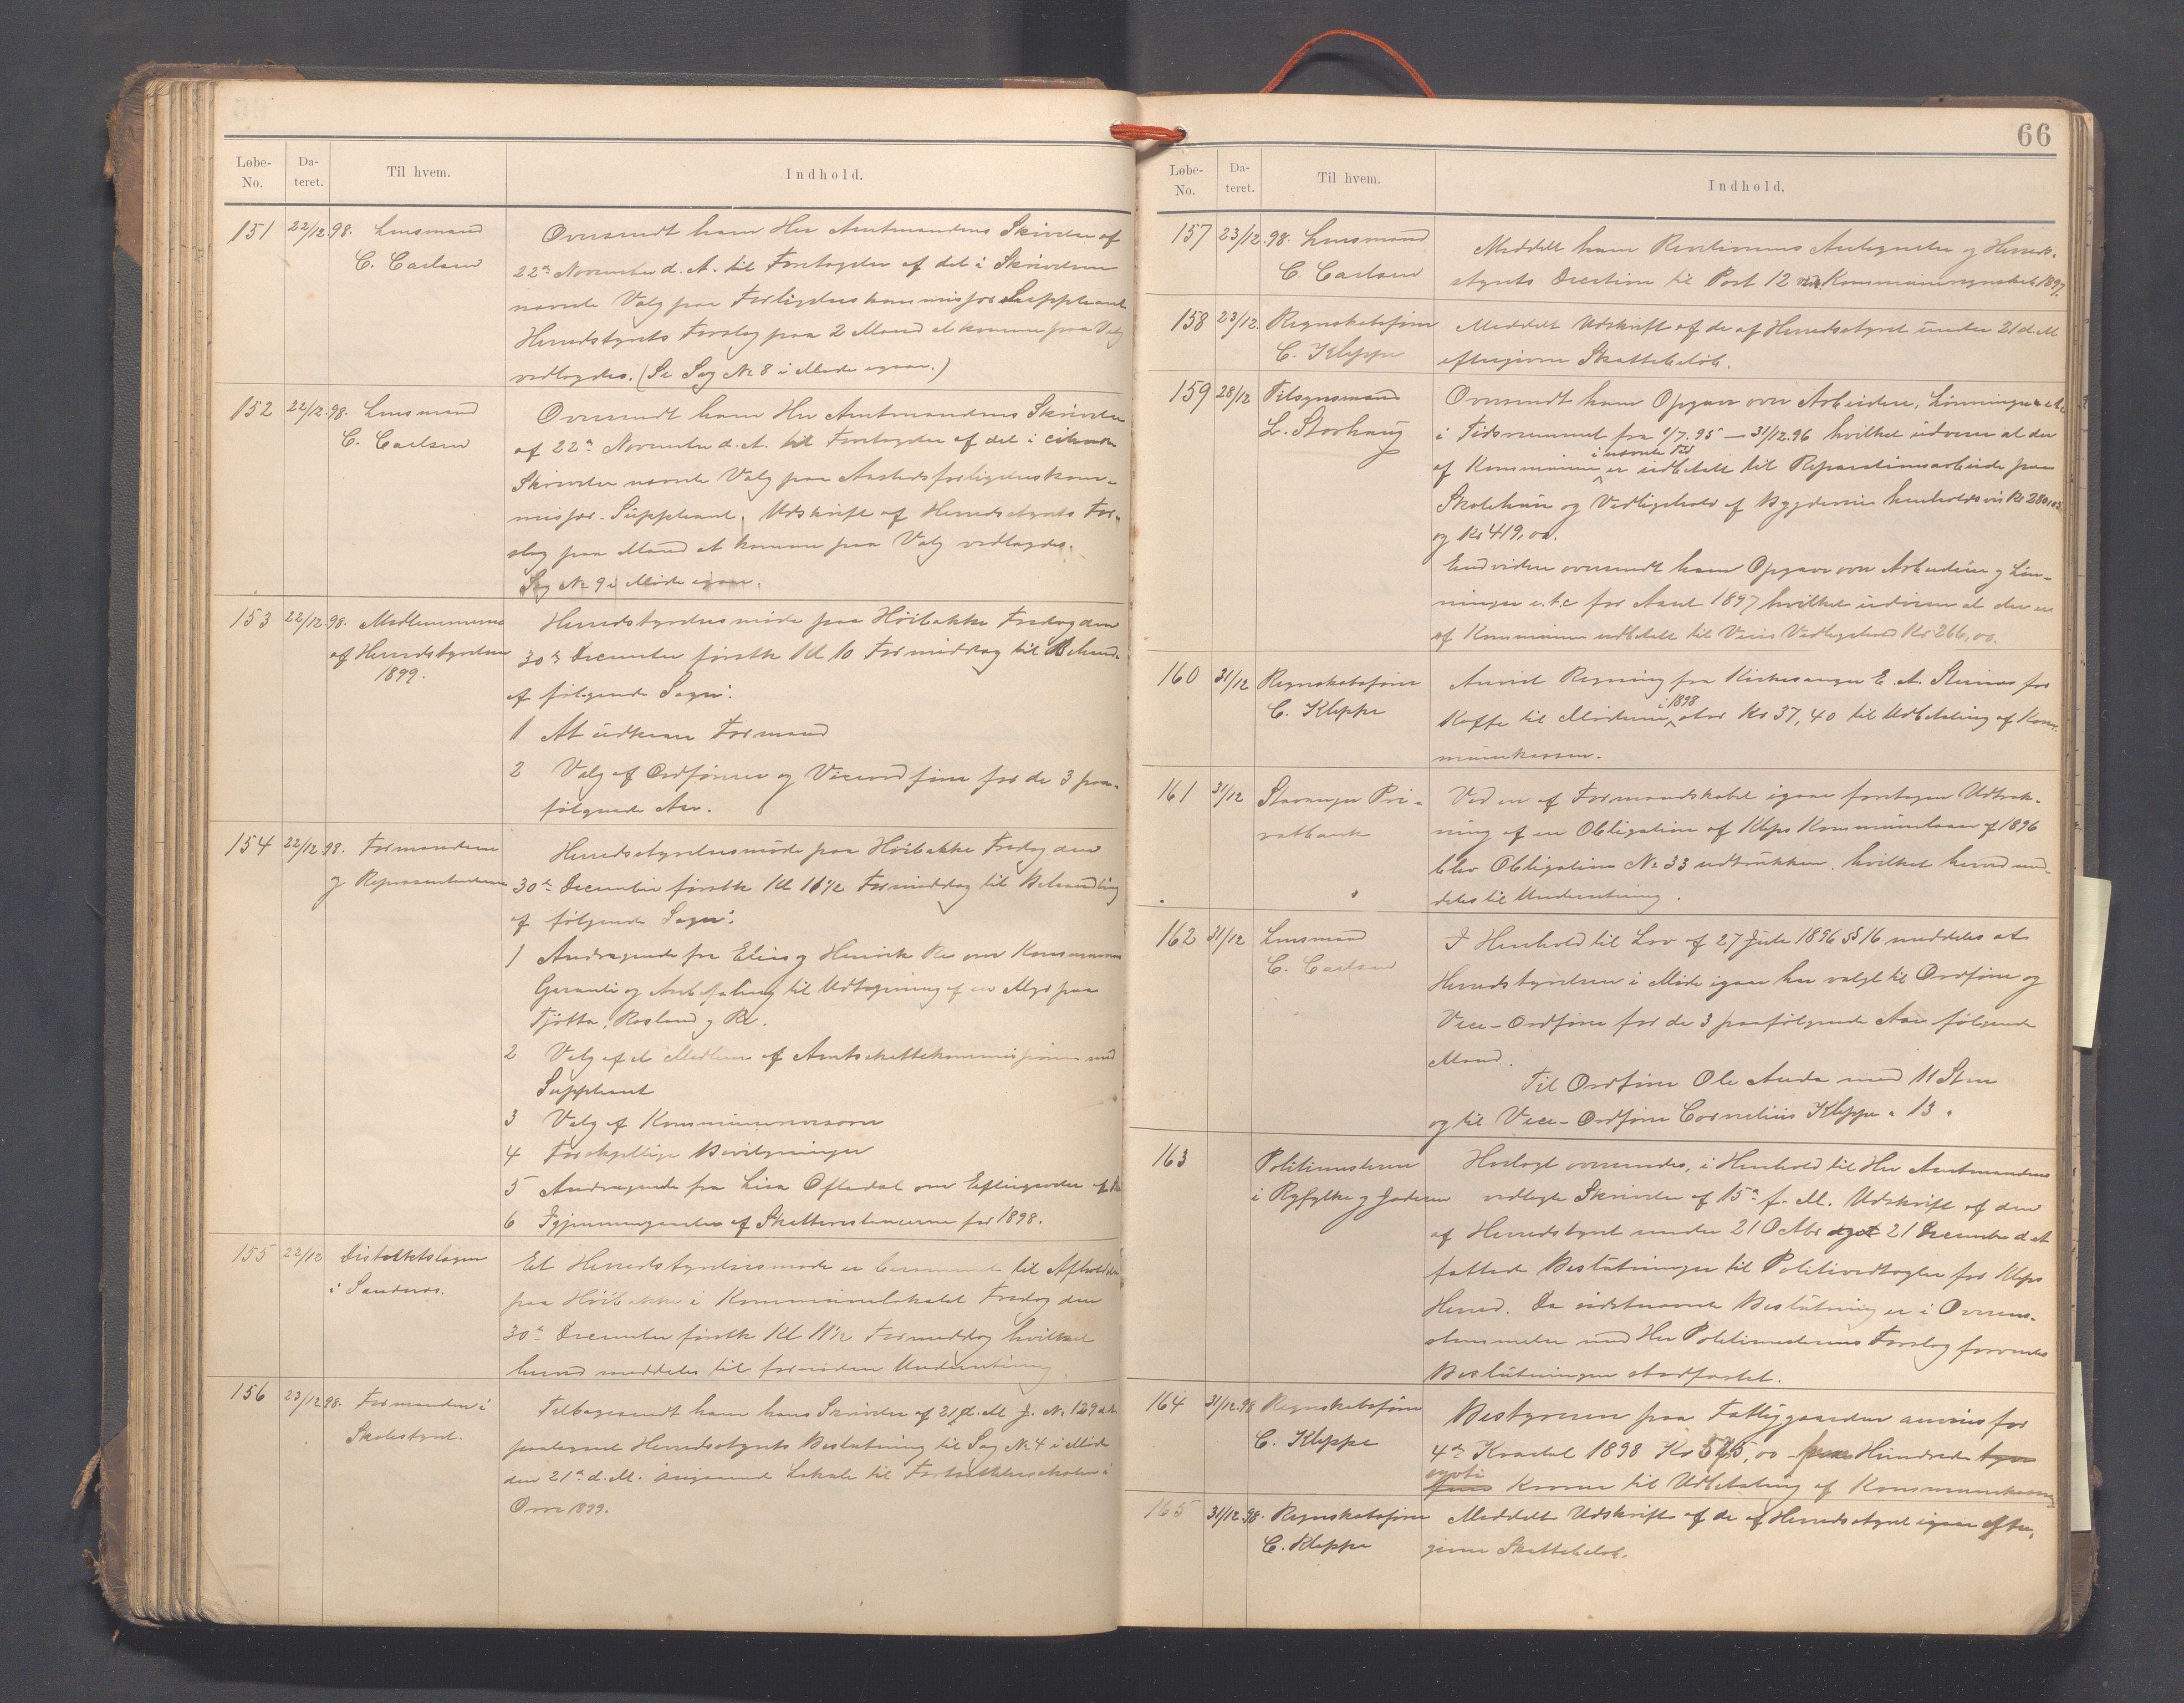 Løbe-No. Da-teret. Til hvem. Indhold.
151 22/12.98. Lensmand C. Carlsen
Oversendt ham Hr Amtmandens Skrivelse af
22de November d. A. til Foretagelse af det i Skrivelsen
nævnte Valg paa Forligelseskommissær Suppleant
Herredstyrets Forslag paa 2 Mænd at komme paa Valg
vedlagdes. (Se Sag No 8 i Møde igaar.)
152 22/12.98. Lensmand C. Carlsen
Oversendt ham Hr Amtmandens Skrivelse
af 22de November d. A. til Foretagelse af det i citerede
Skrivelse nævnte Valg paa Aastedsforligelseskom-
missær-Suppleant. Udskrift af Herredsstyrets For-
slag paa Mænd at komme paa Valg vedlagdes.
Sag No 9 i Møde igaar.
153 22/12.98. Medlemmerne af Herredsstyrelsen 1899.
Herredstyrelsesmøde paa Höibakke Fredag den
30te December førstk Kl 10 Formiddag til Behand.
af følgende Sager:
1 At udkaare Formænd
2 Valg af Ordfører og Viceordfører for de 3 paa-
følgende Aar.
154 22/12.98. Formændene og Repræsentanterne
Herredsstyrelsesmøde paa Höibakke Fredag den
30te December førstk Kl 11 1/2 Formiddag til Behandling
af følgende Sager:
1 Andragende fra Elias og Henrik Re om Kommunens
Garanti og Anbefaling til Udtapning af en Myr paa
Tjøtta, Rosland og Re.
2 Valg af et Medlem af Amtsskattekommissionen med
Suppleant
3 Valg af Kommunerevisorer
4 Forskjellige Bevilgninger
5 Andragende fra Lisa Oftedal om Eftergivelse af
6 Igjennemgaaelse af Skatterestancerne for 1898.
155 22/12 Distriktslægen i Sandnes.
Et Herredsstyrelsesmøde er berammet til Afholdelse
paa Höibakke i Kommunelokalet Fredag den
30te December førstk Kl 11 1/2 Formiddag hvilket
herved meddeles til fornøden Underretning
156 23/12.98. Formanden i Skolestyret.
Tilbagesendt ham hans Skrivelse af 21 d. M J. No 129
paategnet Herredsstyrets Beslutning til Sag No 4 i Møde
den 21de d. M. angaaende Lokale til Fortsættelsesskolen i
Orre 1899.
66
Løbe-No. Da-teret. Til hvem. Indhold.
157 23/12.98. Lensmand C. Carlsen
Meddelt ham Revisionens Antegnelse og Herreds-
styrets Decision til Post 12 Kommuneregnskab 1897.
158 23/12. Regnskabsfører C. Kleppe
Meddelt Udskrift af de af Herredsstyret under 21 d. M
eftergivne Skattebeløb.
159 28/12 Tilsynsmand L. Storhaug
Oversendt ham Opgave over Arbeidere, Lønninger etc
i Tidsrummet fra 1/7.95 – 31/12.96 hvilket udviser at der
af Kommunen i nævnte Tid er udbetalt til Reparationsarbeide paa
Skolehuse og Vedligehold af Bygdeveie henholdsvis Kr 280,02
og Kr 419,00.
Endvidere oversendt ham Opgave over Arbeidere og Løn-
ninger etc for Aaret 1897 hvilket udviser at der er
af Kommunen udbetalt til Veies Vedligehold Kr 266,00.
160 31/12 Regnskabsfører C. Kleppe
Anvist Regning fra Kirkesanger E. A. Steinnes for
Kaffe til Møderne i 1898 stor Kr 37,40 til Udbetaling af Kom-
munekassen.
161 31/12 Stavanger Pri-vatbank
Ved en af Formandskabet igaar foretagen Udtræk-
ning af en Obligation af Kleps Kommunelaan af 1896
blev Obligation No 33 udtrukken, hvilket herved med-
deles til Underretning.
162 31/12 Lensmand C. Carlsen
I Henhold til Lov af 27 Juli 1896 §§ 16 meddeles at
Herredsstyrelsen i Møde igaar har valgt til Ordfører og
Vice-Ordfører for de 3 paafølgende Aar følgende
Mænd.
Til Ordfører Ole Anda med 11 Stm
og til Vice-Ordfører Cornelius Kleppe " 13 "
163 Politimesteren i Ryfylke og Jæderen
Hoslagt oversendes, i Henhold til Hr Amtmandens
vedlagte Skrivelse af 15de f. M. Udskrift af den
af Herredsstyret under 21 Octbr og 21 December d. A
fattede Beslutninger til Politivedtægter for Kleps
Herred. Da sidstnævnte Beslutning er i Overens-
stemmelse med Hr Politimesterens Forslag forventes
Beslutningen stadfæstet.
164 31/12.98 Regnskabsfører C. Kleppe
Bestyreren paa Fattiggaarden anvises for
4de Kvartal 1898 Kr 525,00 Hundrede
Kroner til Udbetaling af Kommunekassen
165 31/12.98. Regnskabsfører C. Kleppe
Meddelt Udskrift af de af Herredsstyret igaar efter-
givne Skattebeløb.